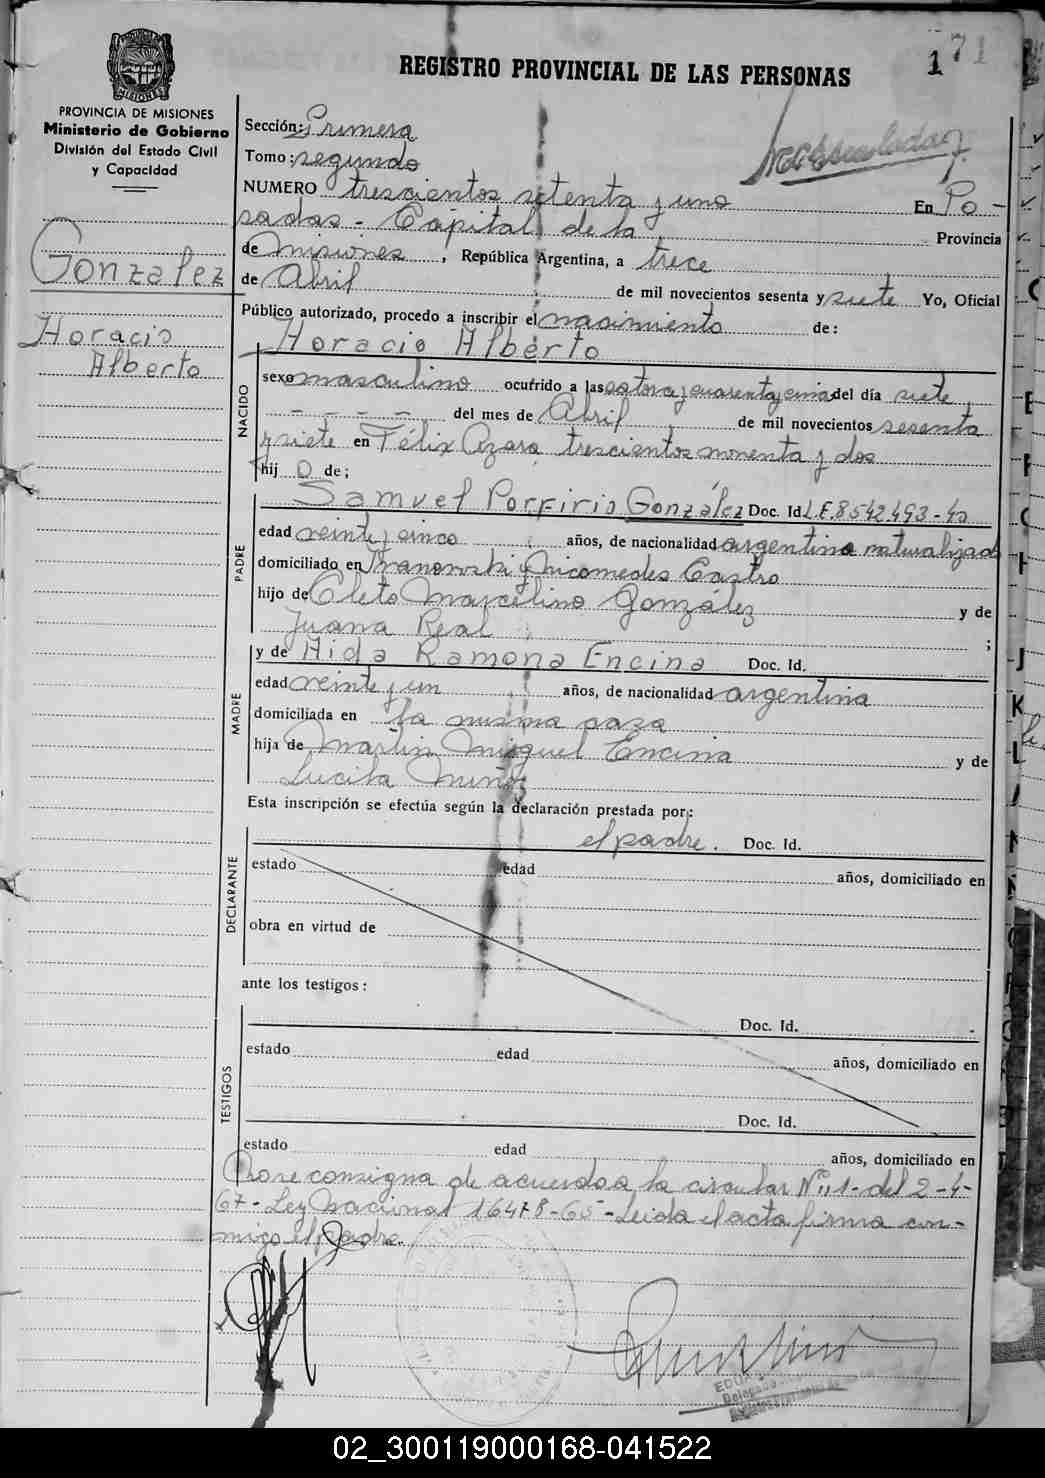 REGISTRO PROVINCIAL DE LAS PERSONAS
171
PROVINCIA DE MISIONES
Ministerio de Gobierno
División del Estado Civil
y Capacidad
Gonzalez
Horacio
Alberto
Sección: Primera
Tomo: segundo
NUMERO trescientos setenta y uno En Po-
sadas - Capital de la Provincia
de Misiones, República Argentina, a trece
de Abril de mil novecientos sesenta y siete Yo, Oficial
Público autorizado, procedo a inscribir el nacimiento de:
Horacio Alberto
NACIDO
sexo masculino ocurrido a las catorce y cuarenta y cinco del día siete
- - - - del mes de Abril de mil novecientos sesenta
y siete en Félix Azara trescientos noventa y dos
hij o de;
PADRE
Samuel Porfirio González Doc. Id L.E. 8542.493-
edad veinte y cinco años, de nacionalidad argentina naturalizado
domiciliado en y Nicomedes Castro
hijo de Cleto Marcelino González y de
Juana Real ;
MADRE
y de Aida Ramona Encina Doc. Id.
edad veinte y un años, de nacionalidad argentina
domiciliada en la misma casa
hija de Martin Miguel Encina y de
Lucila
Esta inscripción se efectúa según la declaración prestada por:
el padre. Doc. Id.
DECLARANTE
estado edad años, domiciliado en
obra en virtud de
ante los testigos:
TESTIGOS
Doc. Id.
estado edad años, domiciliado en
Doc. Id.
estado edad años, domiciliado en
consigna de acuerdo a la circular Nº 11 - del 2-4-
67 - Ley Nacional 16478-65 - Leida el acta firma con-
migo el Padre.
02_300119000168-041522